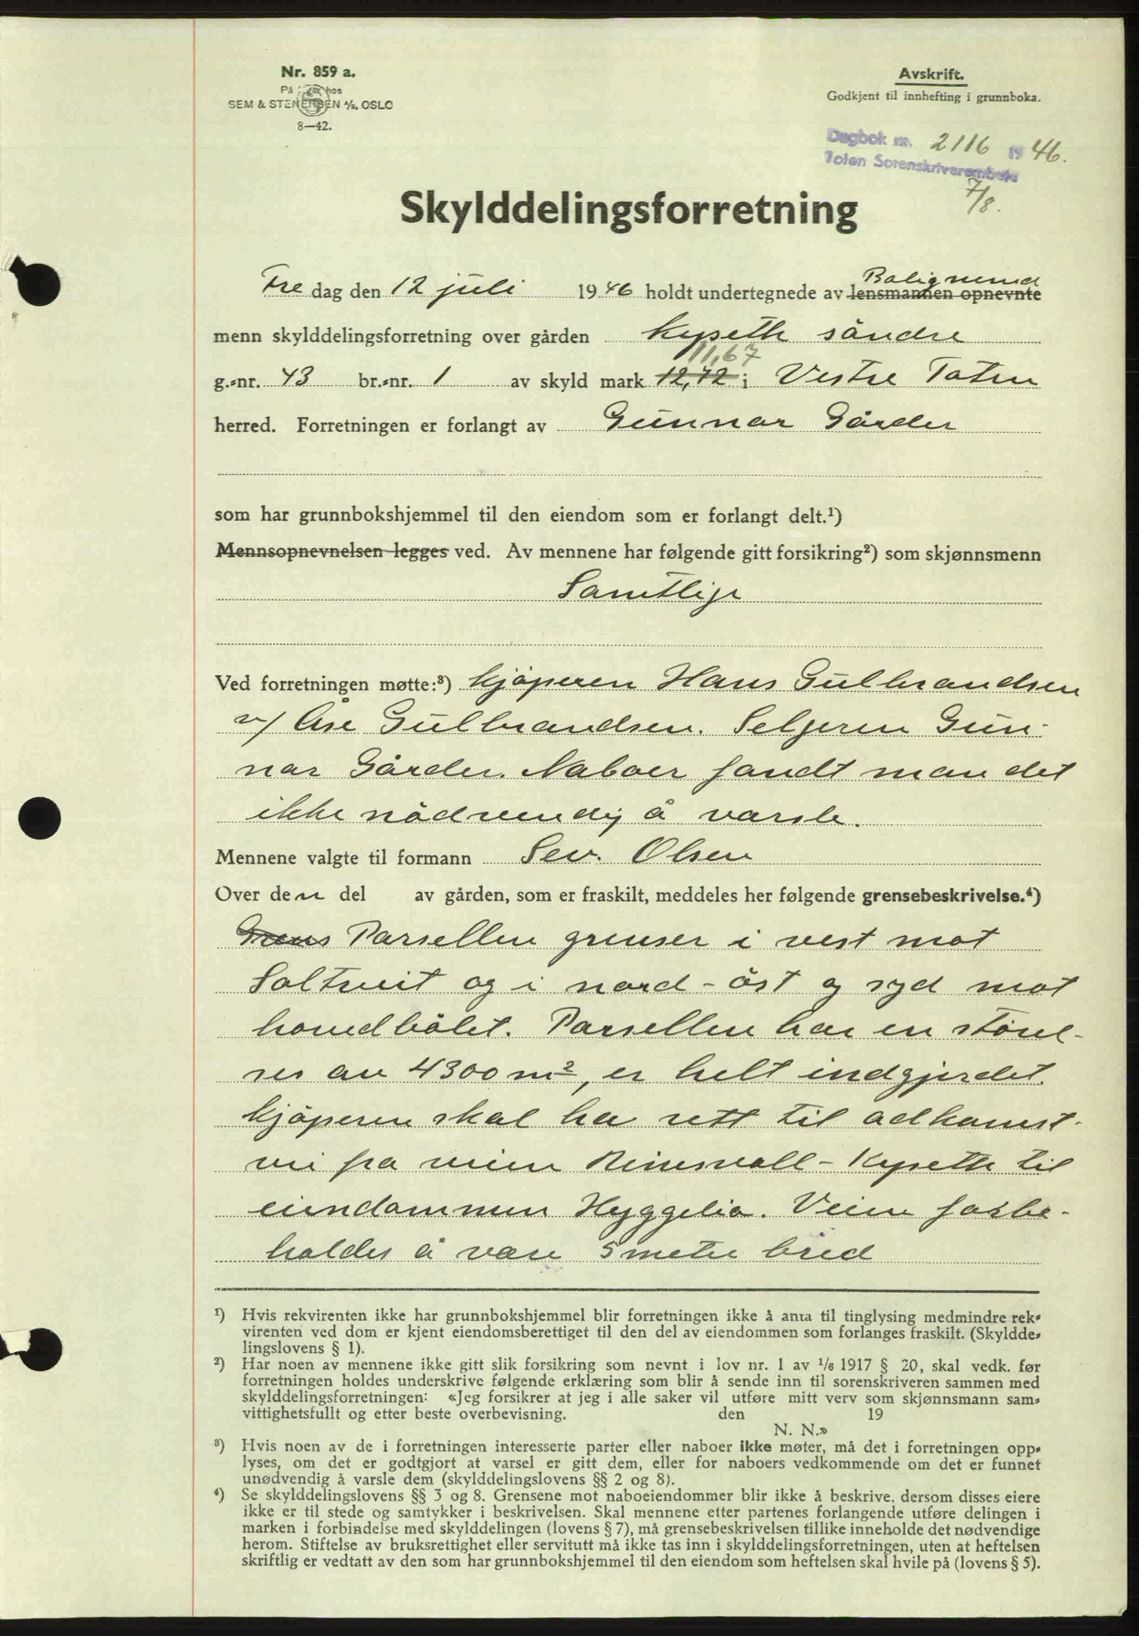 Nr. 859 a.
På lager hos
SEM & STENERSEN A/S, OSLO
8—42.
Avskrift.
Godkjent til innhefting i grunnboka.
Dagbok nr. 2116 1946.
Toten Sorenskriverembete
7/8.
Skylddelingsforretning
Fredag den 12 juli 1946 holdt undertegnede av lensmannen opnevnte
menn skylddelingsforretning over gården Kyseth söndre
11,67
g.-nr. 43 br.-nr. 1 av skyld mark 12,72 i Vestre Toten
herred. Forretningen er forlangt av Gunnar Gårder
som har grunnbokshjemmel til den eiendom som er forlangt delt.¹)
Mennsopnevnelsen legges ved. Av mennene har følgende gitt forsikring²) som skjønnsmenn
Samtlige
Ved forretningen møtte:³) Kjöperen Hans Gulbrandsen
v/ Åse Gulbrandsen. Selgeren Gun-
nar Gårder. Naboer fandt man det
ikke nödvendig å varsle.
Mennene valgte til formann Sev. Olsen
Over den del av gården, som er fraskilt, meddeles her følgende grensebeskrivelse.⁴)
Grens Parsellen grenser i vest mot
Saltveit og i nord - öst og syd mot
hovedbölet. Parsellen har en störel-
ses av 4300 m², er helt indgjerdet.
Kjöperen skal ha rett til adkomst-
vei fra veien Reinsvoll - Kyseth til
eiendommen Hyggelia. Veien forbe-
holdes å være 5 meter bred
¹) Hvis rekvirenten ikke har grunnbokshjemmel blir forretningen ikke å anta til tinglysing medmindre rek-
virenten ved dom er kjent eiendomsberettiget til den del av eiendommen som forlanges fraskilt. (Skyldde-
lingslovens § 1).
²) Har noen av mennene ikke gitt slik forsikring som nevnt i lov nr. 1 av 1/6 1917 § 20, skal vedk. før
forretningen holdes underskrive følgende erklæring som blir å sende inn til sorenskriveren sammen med
skylddelingsforretningen: «Jeg forsikrer at jeg i alle saker vil utføre mitt verv som skjønnsmann sam-
vittighetsfullt og etter beste overbevisning. den 19
N. N.»
³) Hvis noen av de i forretningen interesserte parter eller naboer ikke møter, må det i forretningen opp-
lyses, om det er godtgjort at varsel er gitt dem, eller for naboers vedkommende om det er funnet
unødvendig å varsle dem (skylddelingslovens §§ 2 og 8).
⁴) Se skylddelingslovens §§ 3 og 8. Grensene mot naboeiendommer blir ikke å beskrive, dersom disses eiere
ikke er til stede og samtykker i beskrivelsen. Skal mennene etter partenes forlangende utføre delingen i
marken i forbindelse med skylddelingen (lovens § 7), må grensebeskrivelsen tillike inneholde det nødvendige
herom. Stiftelse av bruksrettighet eller servitutt må ikke tas inn i skylddelingsforretningen, uten at heftelsen
skriftlig er vedtatt av den som har grunnbokshjemmel til den eiendom som heftelsen skal hvile på (lovens § 5).